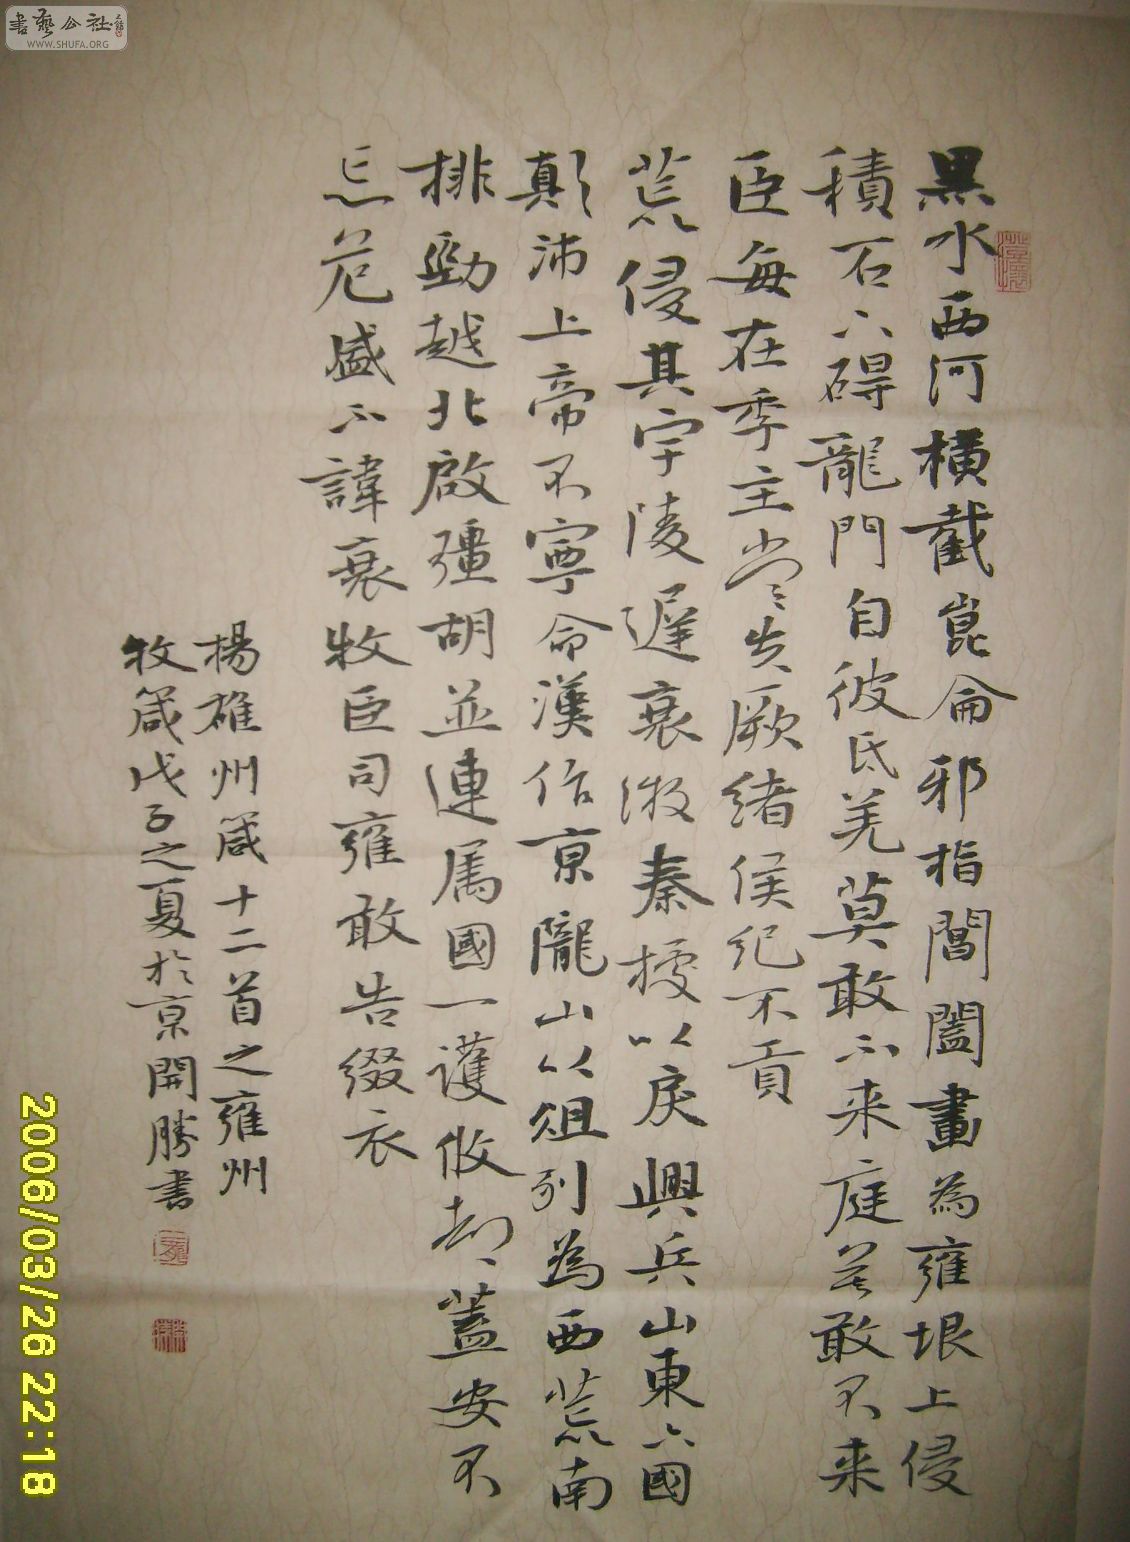 書藝公社
WWW.SHUFA.ORG
黑水西河橫截崑侖邪指閶闔畫為雍垠上侵
積石下碍龍門自彼氐羌莫敢不来庭莫敢不来
臣每在季主常失厥緒侯紀不貢
荒侵其宇陵遲衰微秦據以戾興兵山東六國
顛沛上帝不寧命漢作京隴山以徂列為西荒南
排勁越北啟彊胡並連属國一護攸都蓋安不
忘危盛不諱衰牧臣司雍敢告綴衣
楊雄州箴十二首之雍州
牧箴戊子之夏於京開勝書
2006/03/26 22:18